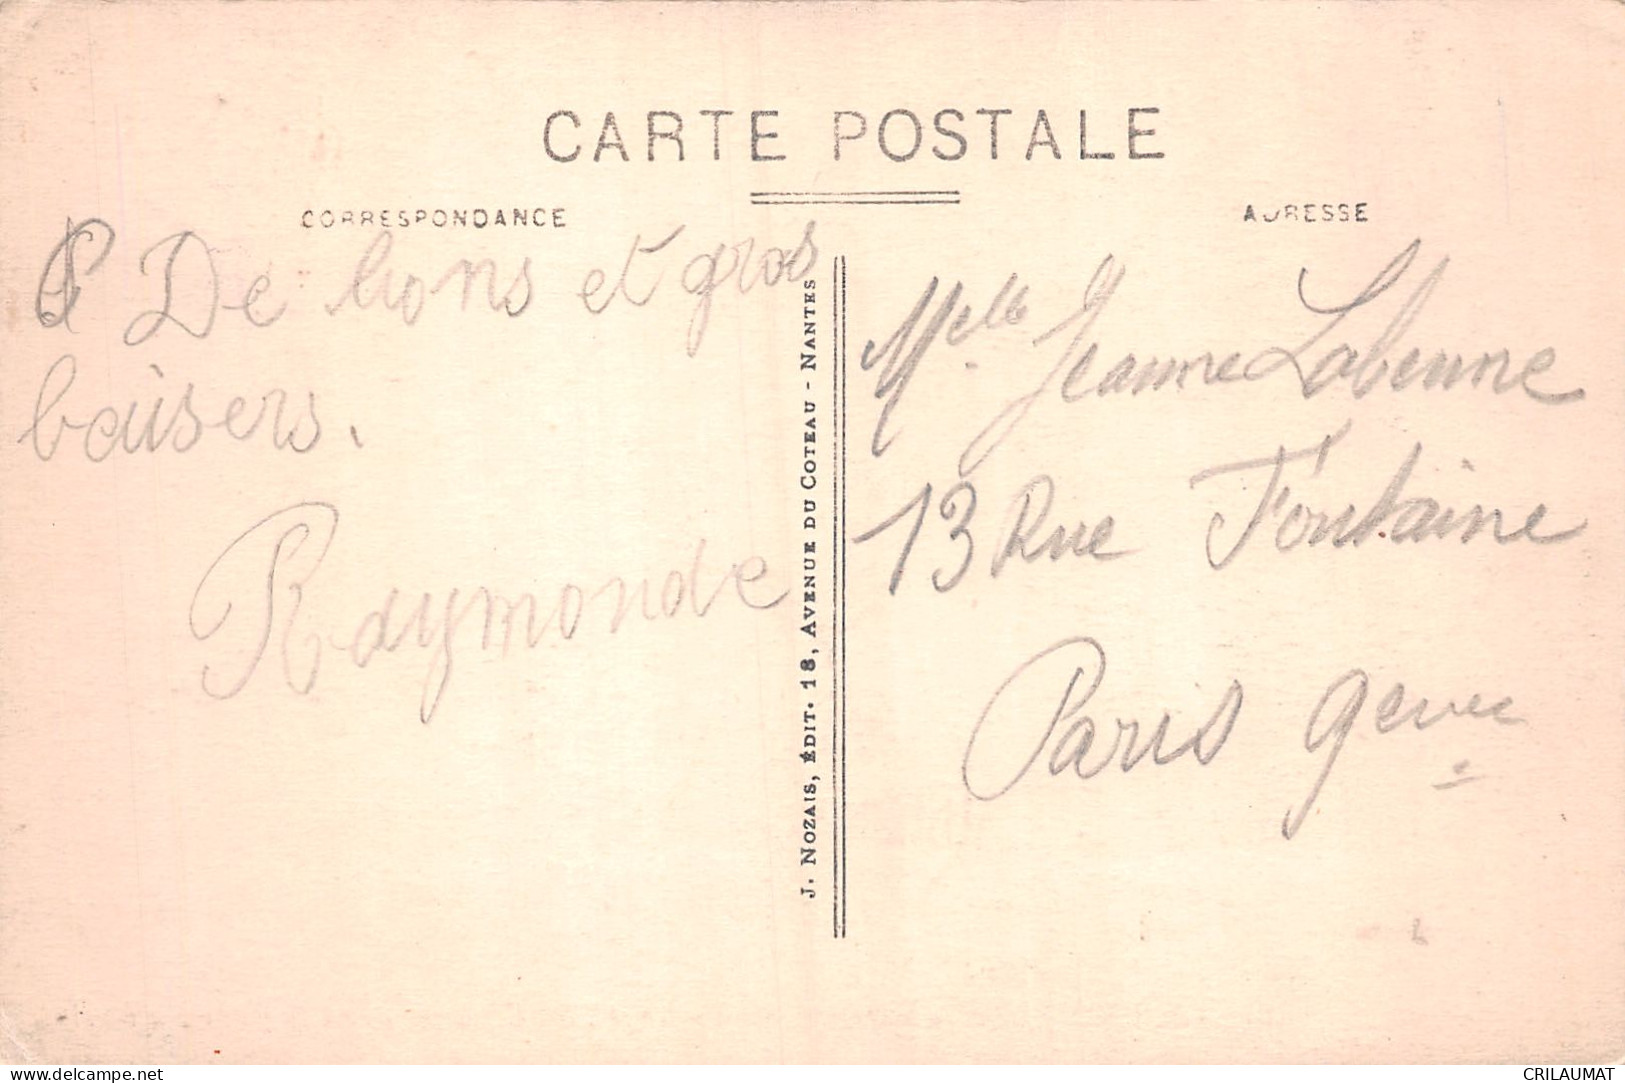 CARTE POSTALE
CORRESPONDANCE
De bons et gros
baisers.
Raymonde
J. NOZAIS, ÉDIT. 18, AVENUE DU COTEAU - NANTES
ADRESSE
Melle Jeanne Labenne
13 Rue Fontaine
Paris 9eme
CRILAUMAT